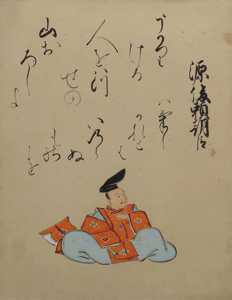 源俊頼朝臣
うかり
ける
人をはつ
せの
山お
ろし
よ
はけし
かれとは
いのら
ぬ
もの
を